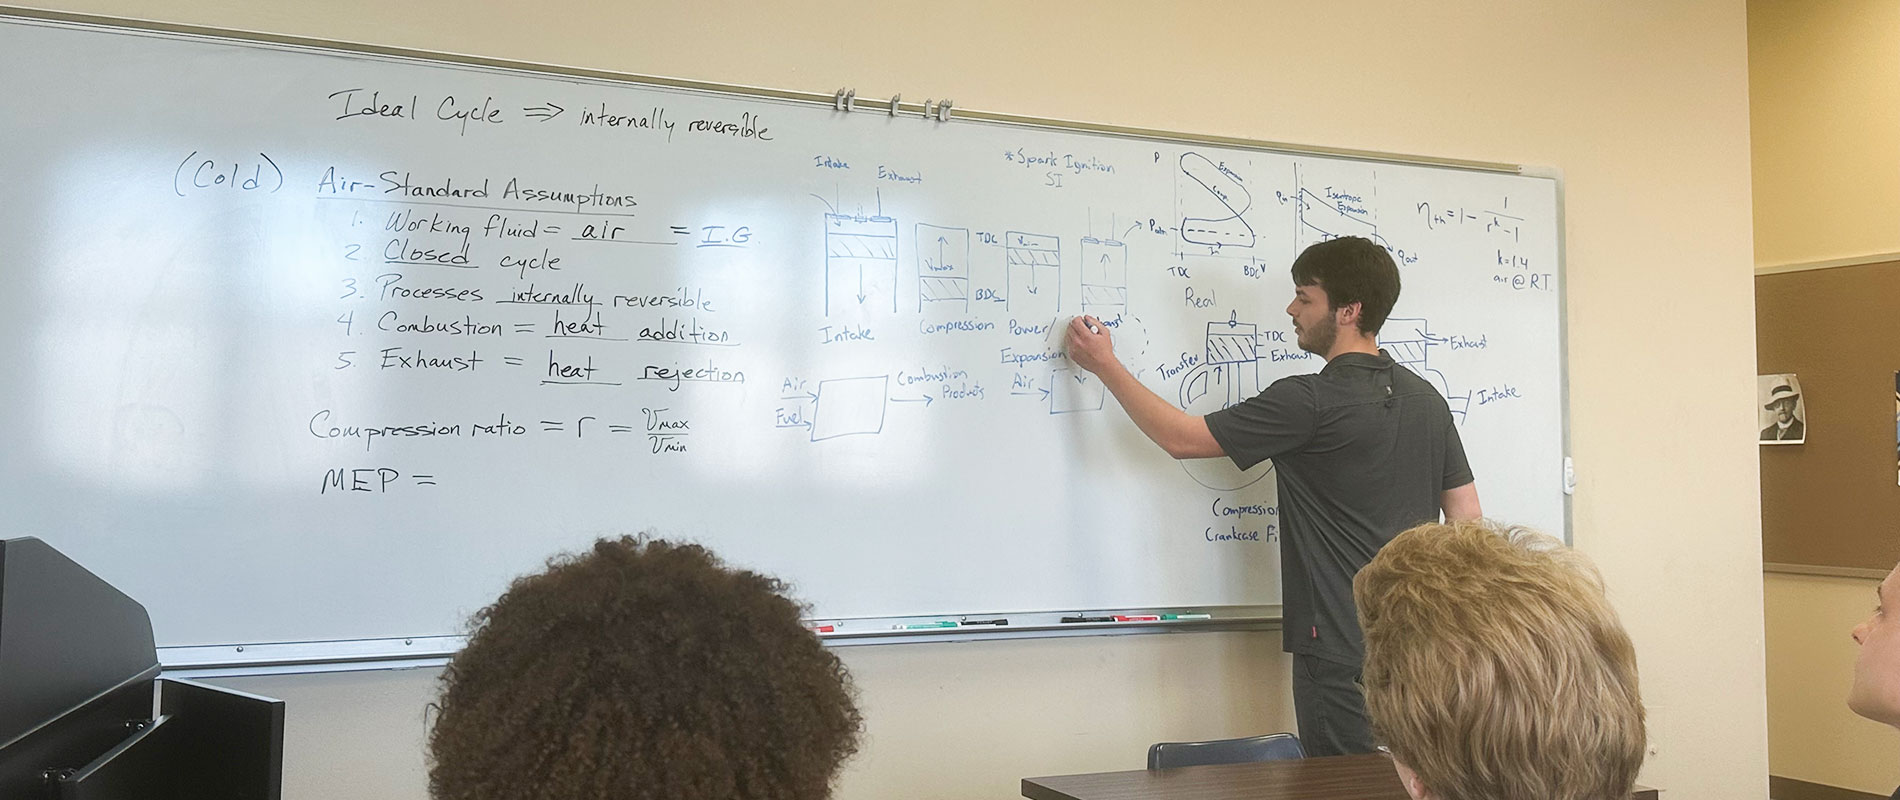 Ideal Cycle ⇒ internally reversible
(Cold) Air-Standard Assumptions
1. Working fluid = air = I.G.
2. Closed cycle
3. Processes internally reversible
4. Combustion = heat addition
5. Exhaust = heat rejection
Compression ratio = r = Vmax/Vmin
MEP =
Intake Exhaust
Intake
Vmax
Compression
* Spark Ignition
SI
TDC
BDC
Power/
Expansion
Air
Fuel
Combustion
Products
Air
P
Expansion
Patm
TDC
BDC V
Real
Isentropic
Expansion
qout
ηth = 1 - 1/r^k-1
k=1.4
air @ R.T.
TDC
Exhaust
Transfer
Exhaust
Intake
Compression
Crankcase